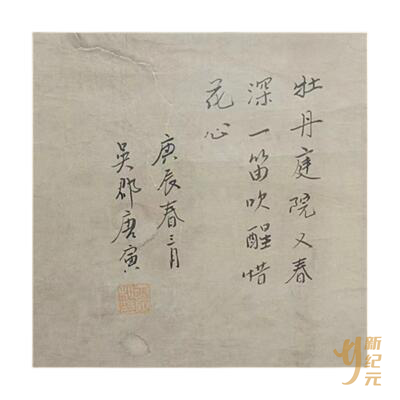 牡丹庭院又春
深一笛吹醒惜
花心
庚辰春三月
吴郡唐寅
新纪元